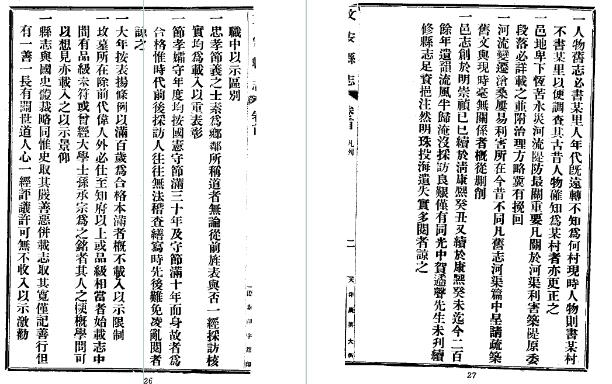 一人物舊志必書某里人年代旣遠轉不知為何村現時人物則書某村
不書某里以便調查其古昔人物確知為某村者亦更正之
一邑地卑下恆苦水災河流隄防最關重要凡關於河渠利害築隄原委
段落必詳載之並附治理方略冀有挽回
一河流變遷滄桑屢易利害所在今昔不同凡舊志河渠篇中呈請疏築
舊文與現時毫無關係者概從刪削
一邑志創於明崇禎己巳續於清康熙癸丑又續於康熙癸未迄今二百
餘年遺韻流風半歸淹沒採訪良艱僅有同光中賀聲先生未刋續
修縣志足資挹注然明珠投海遺失實多閱者諒之
文安縣志
卷首 凡例
二
27
職中以示區別
一忠孝節義之士素為鄉鄰所稱道者無論從前旌表與否一經採訪核
實均為載入以重表彰
一節孝孀守年度均按國憲守節滿三十年及守節滿十年而身故者為
合格惟時代前後採訪人往往無法稽查繕寫時先後難免凌亂閱者
諒之
一大年按表揚條例以滿百歲為合格未滿者概不載入以示限制
一坟墓所在除前代偉人外必仕至知府以上或品級相當者始載志中
間有品級未符或曾經大學士孫承宗為之銘者其人之梗概學問可
以想見亦載入之以示景仰
一縣志與國史體裁略同惟史取其嚴善惡併載志取其寬僅記善行但
有一善一長有關世道人心一經評議許可無不收入以示激勸
26